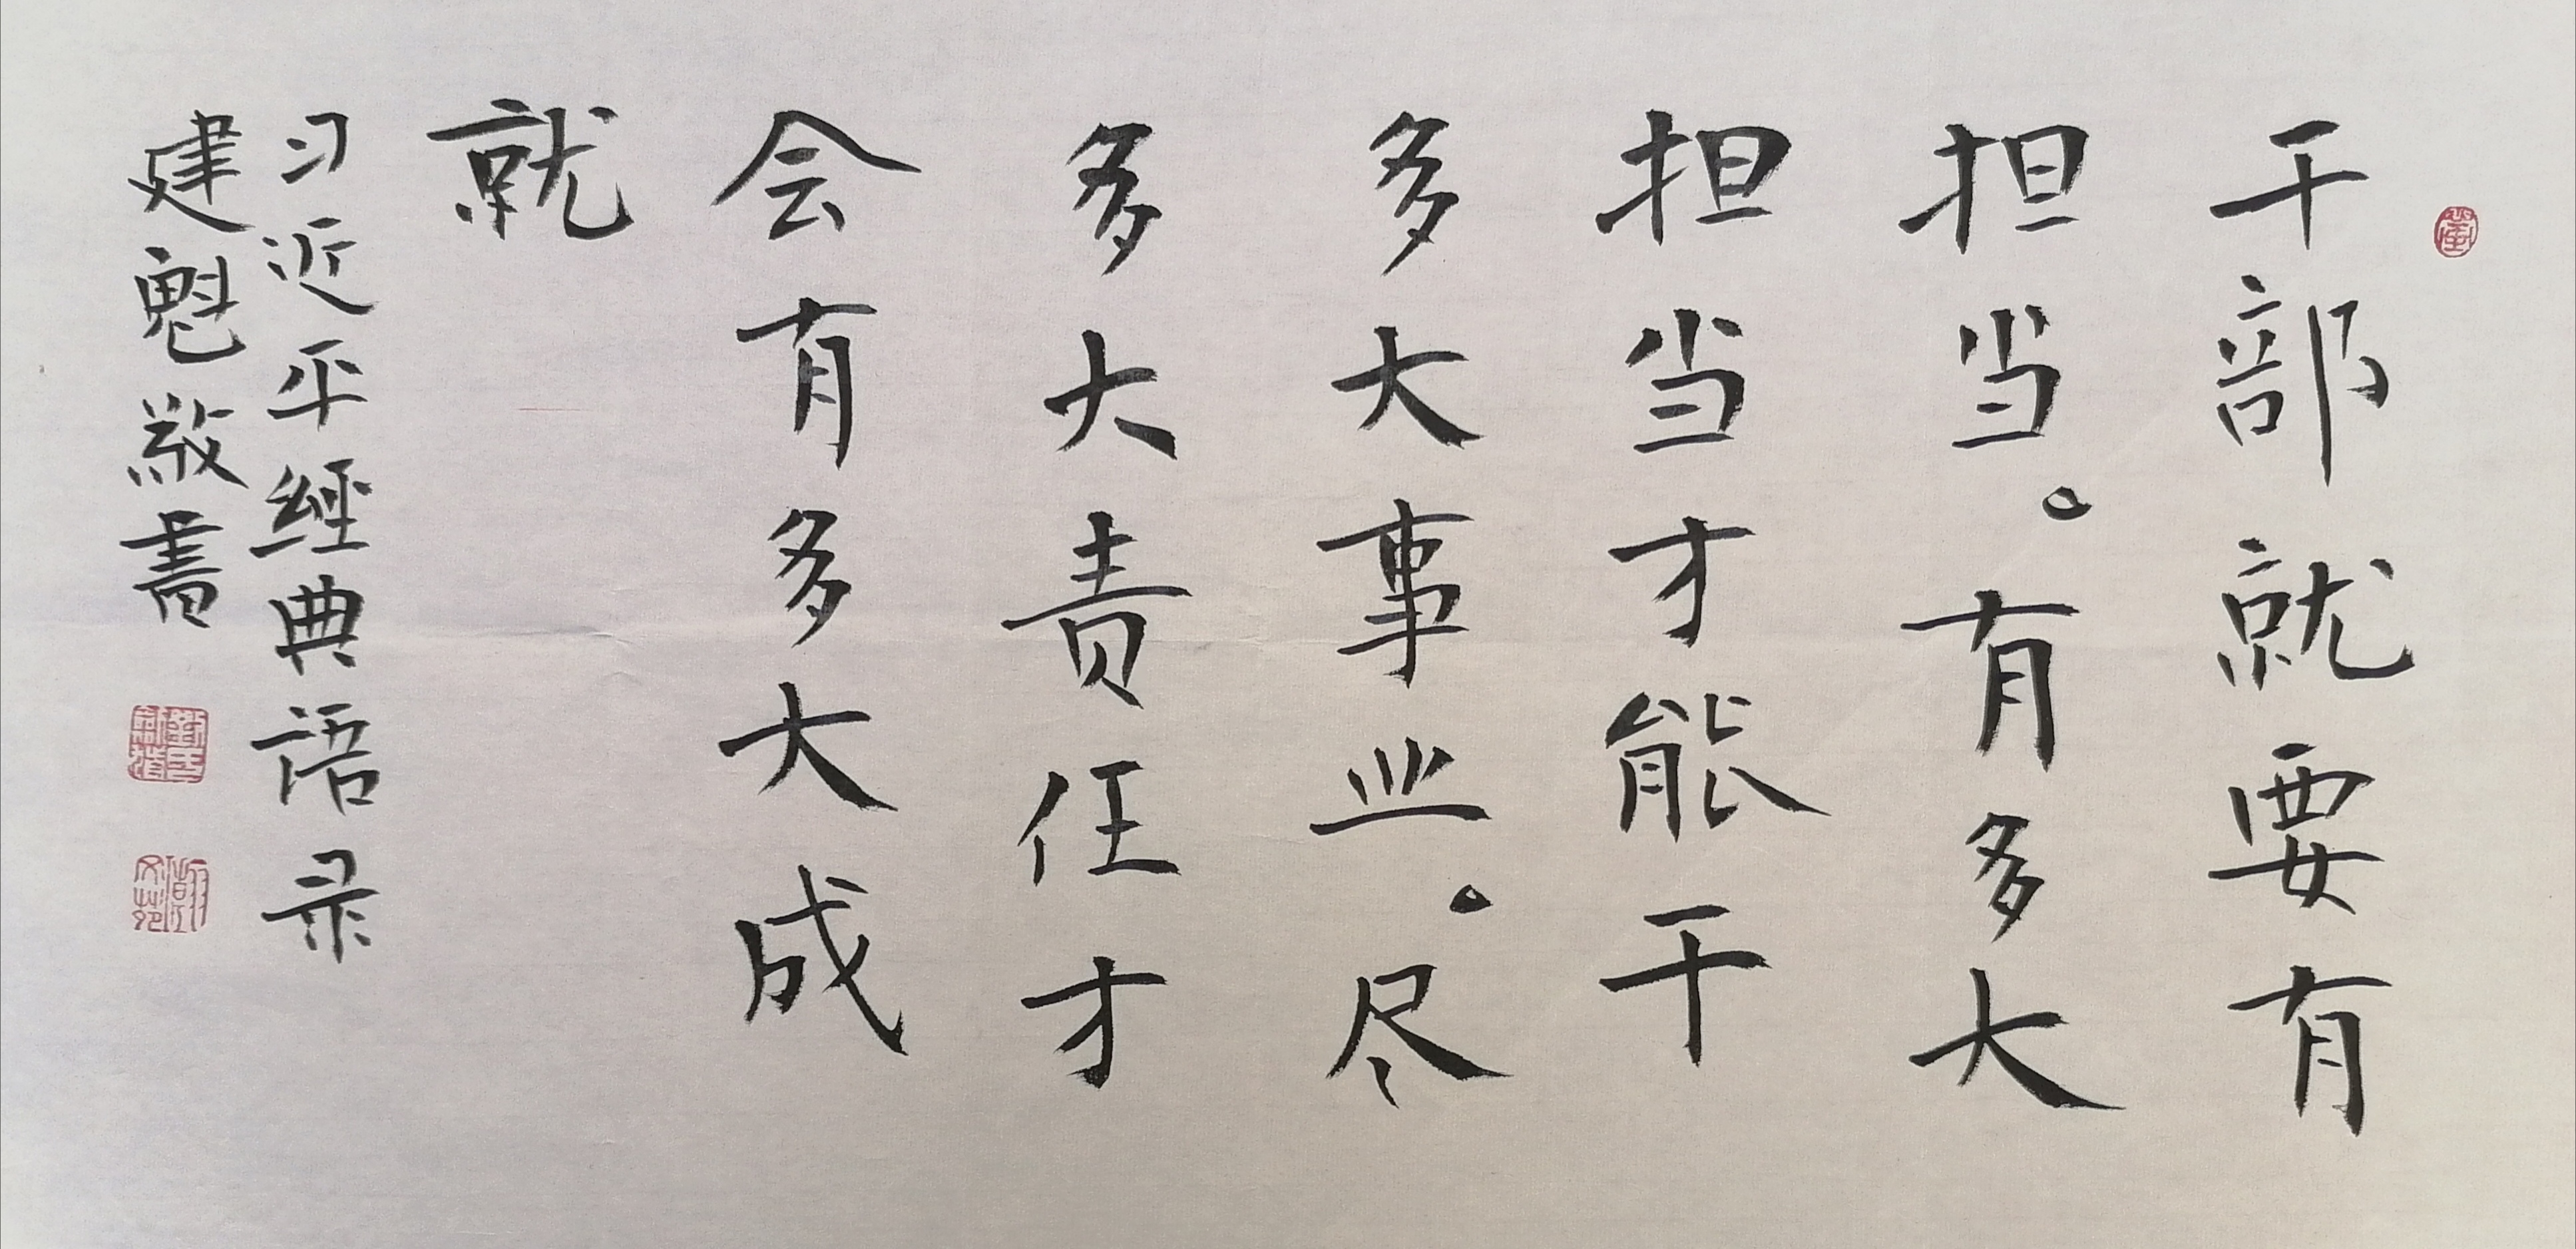 干部就要有
担当。有多大
担当才能干
多大事业。尽
多大责任才
会有多大成
就
习近平經典語录
建魁敬書